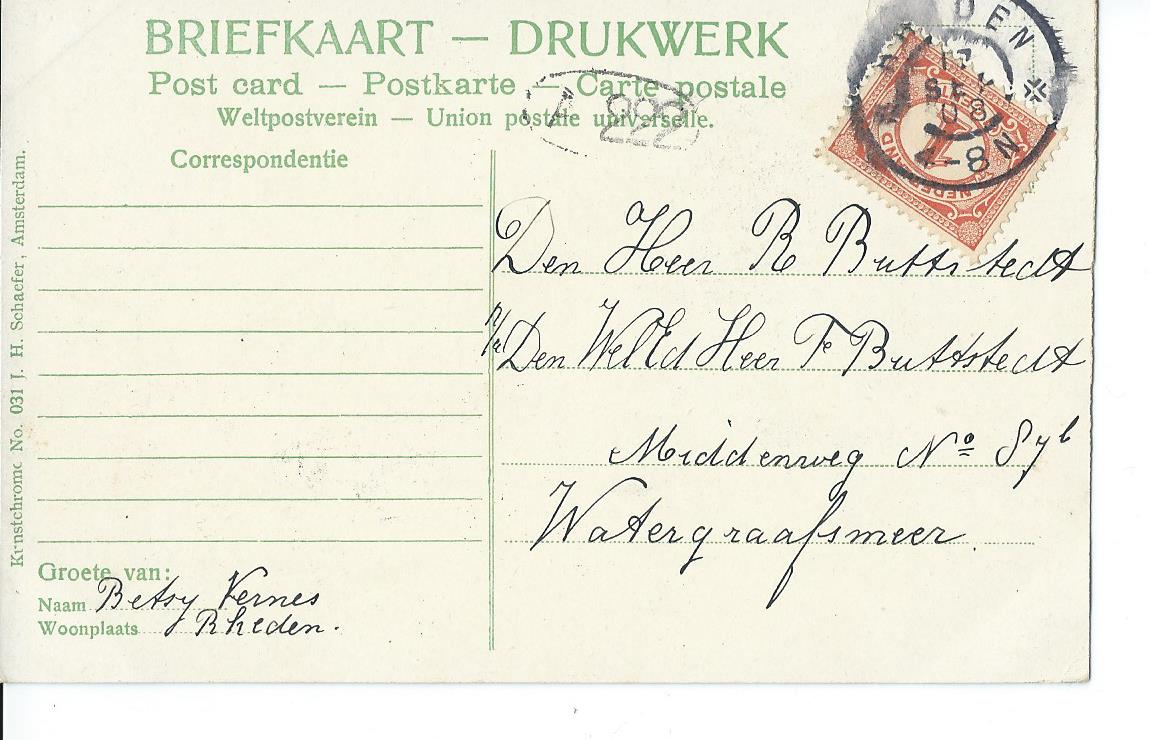 BRIEFKAART — DRUKWERK
Post card — Postkarte — Carte postale
Weltpostverein — Union postale universelle.
Correspondentie
222
DEN
17
SEP
08
4-8 N
NEDERLAND
Den Heer R Buttstedt
p/a Den WelEd Heer Fe Buttstedt
Middenweg No 87b
Watergraafsmeer.
Groete van:
Naam Betsy Vernes
Woonplaats Rheden.
Kunstchromo No. 031 J. H. Schaefer, Amsterdam.